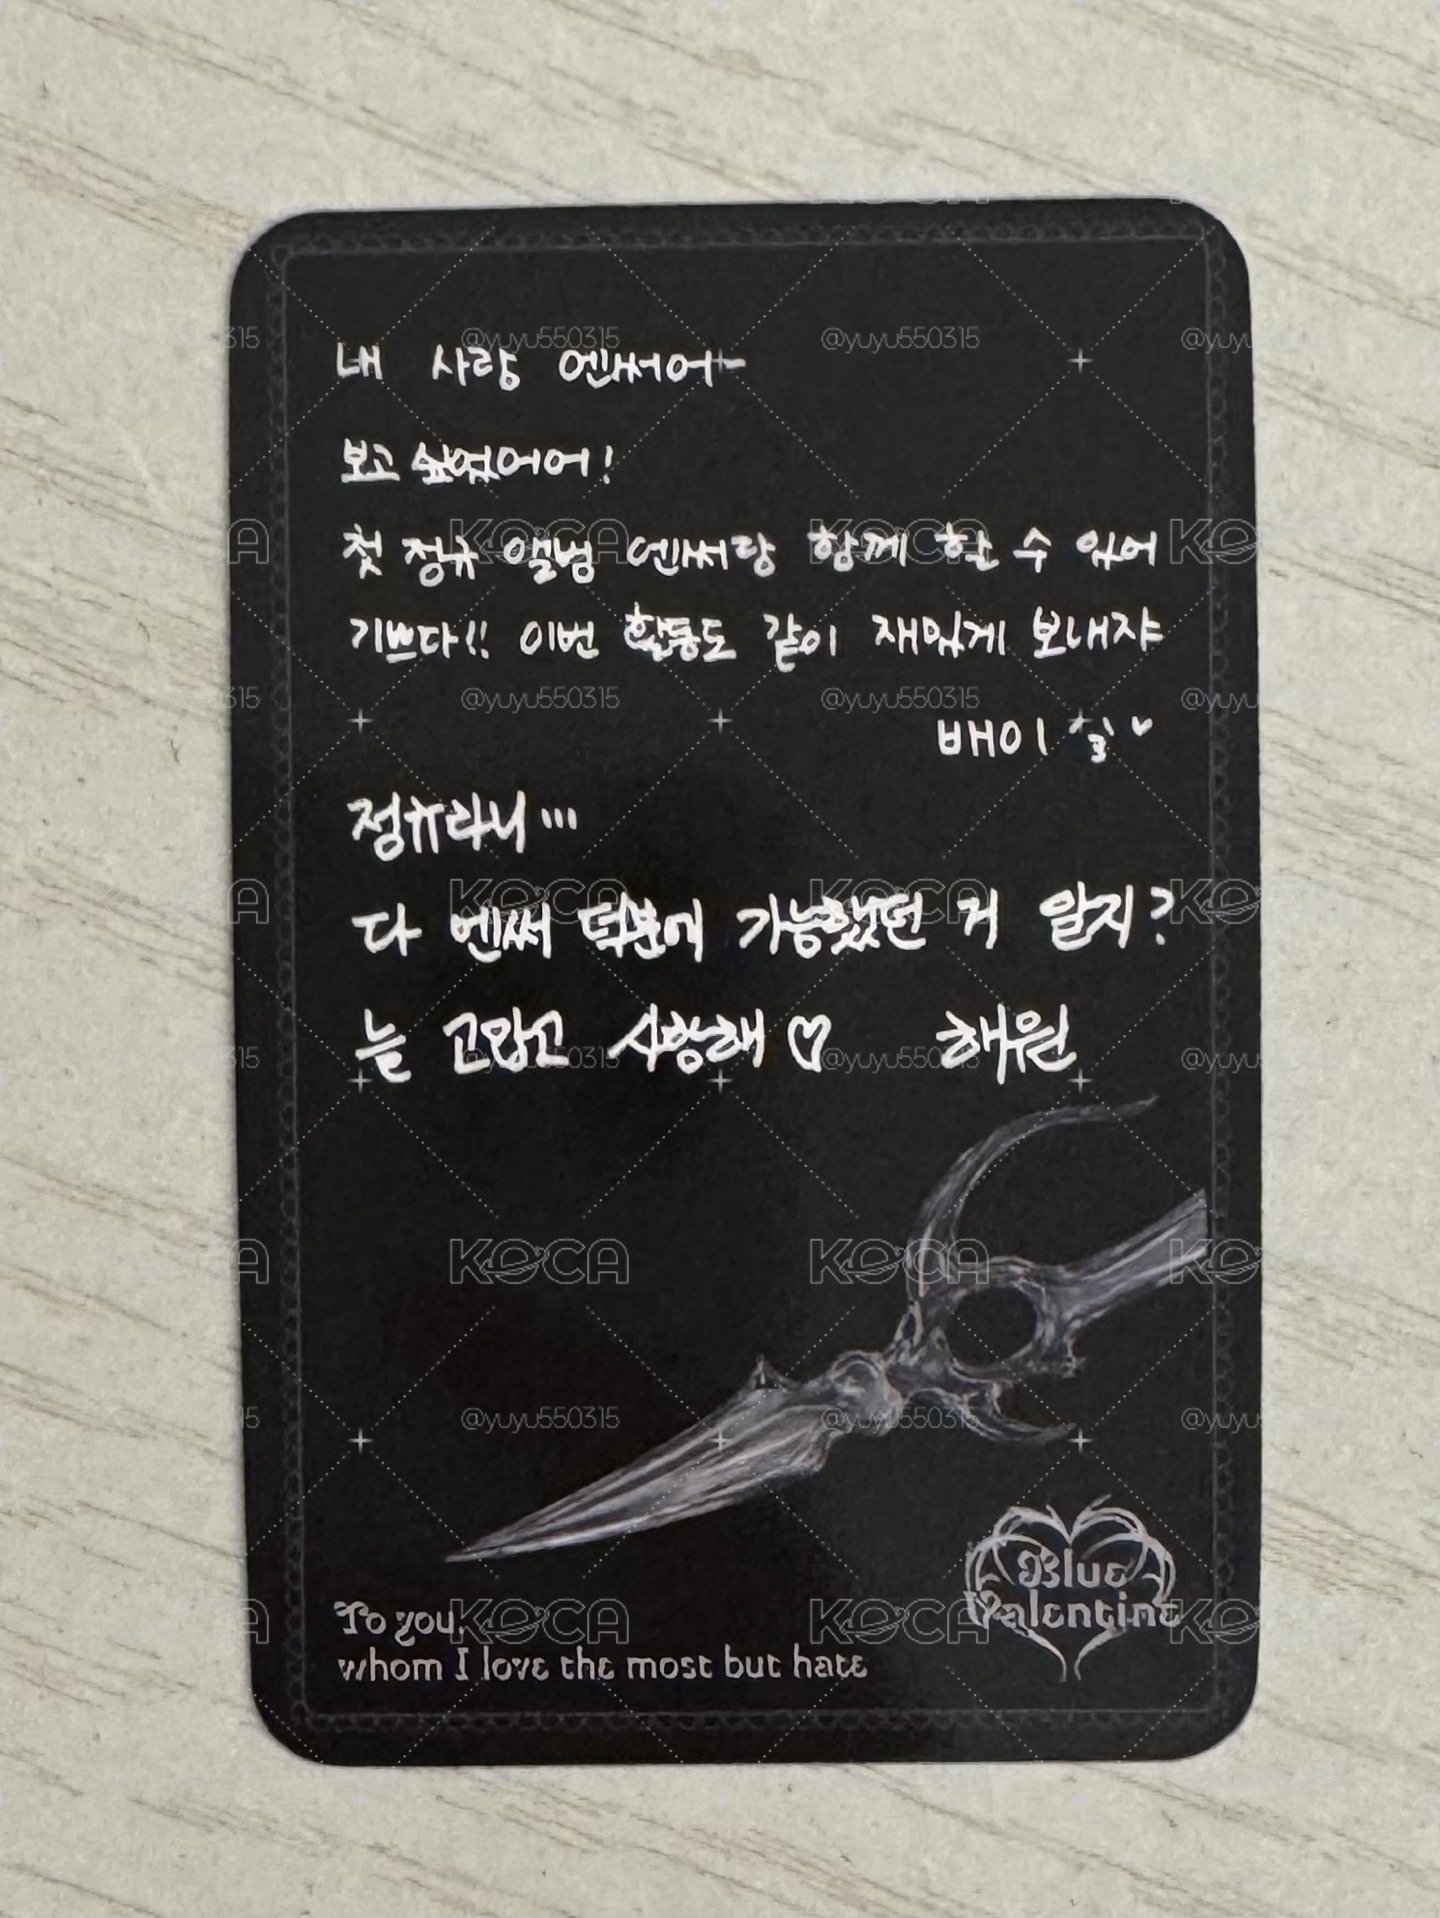 내 사랑 엔써어~
보고 싶었어어!
첫 정규 앨범 엔써랑 함께 할 수 있어
기쁘다!! 이번 활동도 같이 재밌게 보내쟈
배이
정규라니...
다 엔써 덕분에 가능했던 거 알지?
늘 고맙고 사랑해♡ 해원
Blue
Valentine
To you,
whom I love the most but hate
KOCA
@yuyu550315